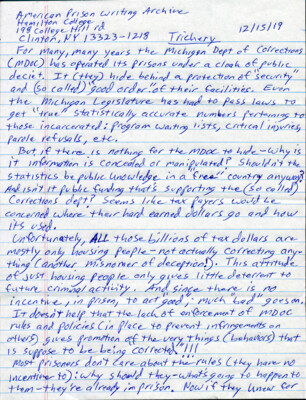 American Prison Writing Archive
Hamilton College
198 College Hill Rd
Clinton, NY 13323-1218 Trichery 12/15/19
For many, many years the Michigan Dept of Corrections
(MDOC) has operated its prisons under a cloak of public
deceit. It (they) hide behind a protection of "security"
and (so called) "good order" of their facilities. Even
the Michigan Legislature has had to pass laws to
get "true" statistically accurate numbers pertaining to
those incarcerated; Program waiting lists, critical injuries,
parole denials, etc.
But if there is nothing for the MDOC to hide - Why is
it information is concealed or manipulated? Shouldn't the
statistics be public knowledge in a "free" country anyway?
And isn't it public funding that's supporting the (so called)
Corrections dept? Seems like tax payers would be
concerned where their hard earned dollars go and how
its used.
Unfortunately, ALL those billions of tax dollars are
mostly only housing people - not actually correcting any-
thing (another misnomer of deception). This attitude
of just housing people only gives little deterrent to
future criminal activity. And since there is no
incentive, in prison, to act good; much "bad" goes on.
It doesn't help that the lack of enforcement of MDOC
rules and policies (in place to prevent infringements on
others) gives promotion of the very things (behaviors) that
is suppose to be being corrected!!!
Most prisoners don't care about the rules (they have no
incentive to); why should they - what's going to happen to
them - they're already in prison. Now if they knew for